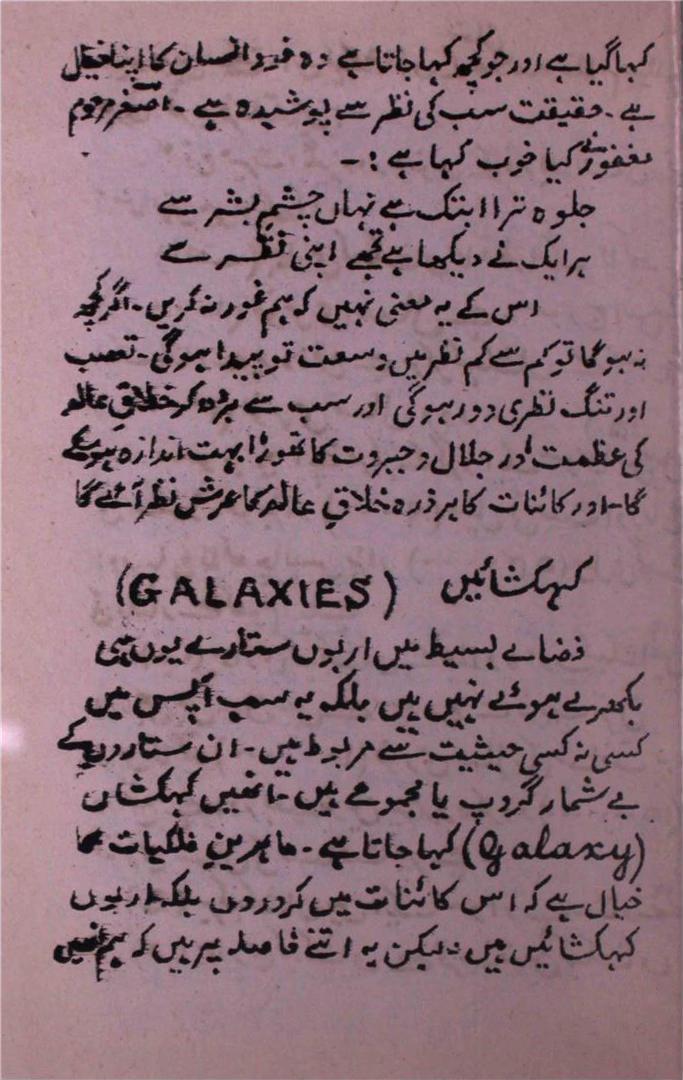 کہا گیا ہے اور جو کچھ کہا جاتا ہے وہ خود انسان کا اپنا تخیل
ہے۔ حقیقت سب کی نظر سے پوشیدہ ہے۔ اصغر مرحوم
مغفور نے کیا خوب کہا ہے :۔
جلوہ ترا ابتک ہے نہاں چشمِ بشر سے
ہر ایک نے دیکھا ہے تجھے اپنی نظر سے
اس کے یہ معنی نہیں کہ ہم غور نہ کریں۔ اگر کچھ
نہ ہو گا تو کم سے کم نظر میں وسعت تو پیدا ہو گی۔ تعصب
اور تنگ نظری دور ہو گی اور سب سے بڑھ کر خلاقِ عالم
کی عظمت اور جلال و جبروت کا تھوڑا بہت اندازہ ہو سکے
گا۔ اور کائنات کا ہر ذرہ خلاقِ عالم کا عرش نظر آئے گا
کہکشائیں (GALAXIES)
فضائے بسیط میں اربوں ستارے یوں ہی
بکھرے ہوئے نہیں ہیں بلکہ یہ سب آپس میں
کسی نہ کسی حیثیت سے مربوط ہیں۔ ان ستاروں کے
بے شمار گروپ یا مجموعے ہیں۔ انھیں کہکشاں
(Galaxy) کہا جاتا ہے۔ ماہرینِ فلکیات کا
خیال ہے کہ اس کائنات میں کروروں بلکہ اربوں
کہکشائیں ہیں؛ لیکن یہ اتنے فاصلہ پر ہیں کہ ہم انھیں